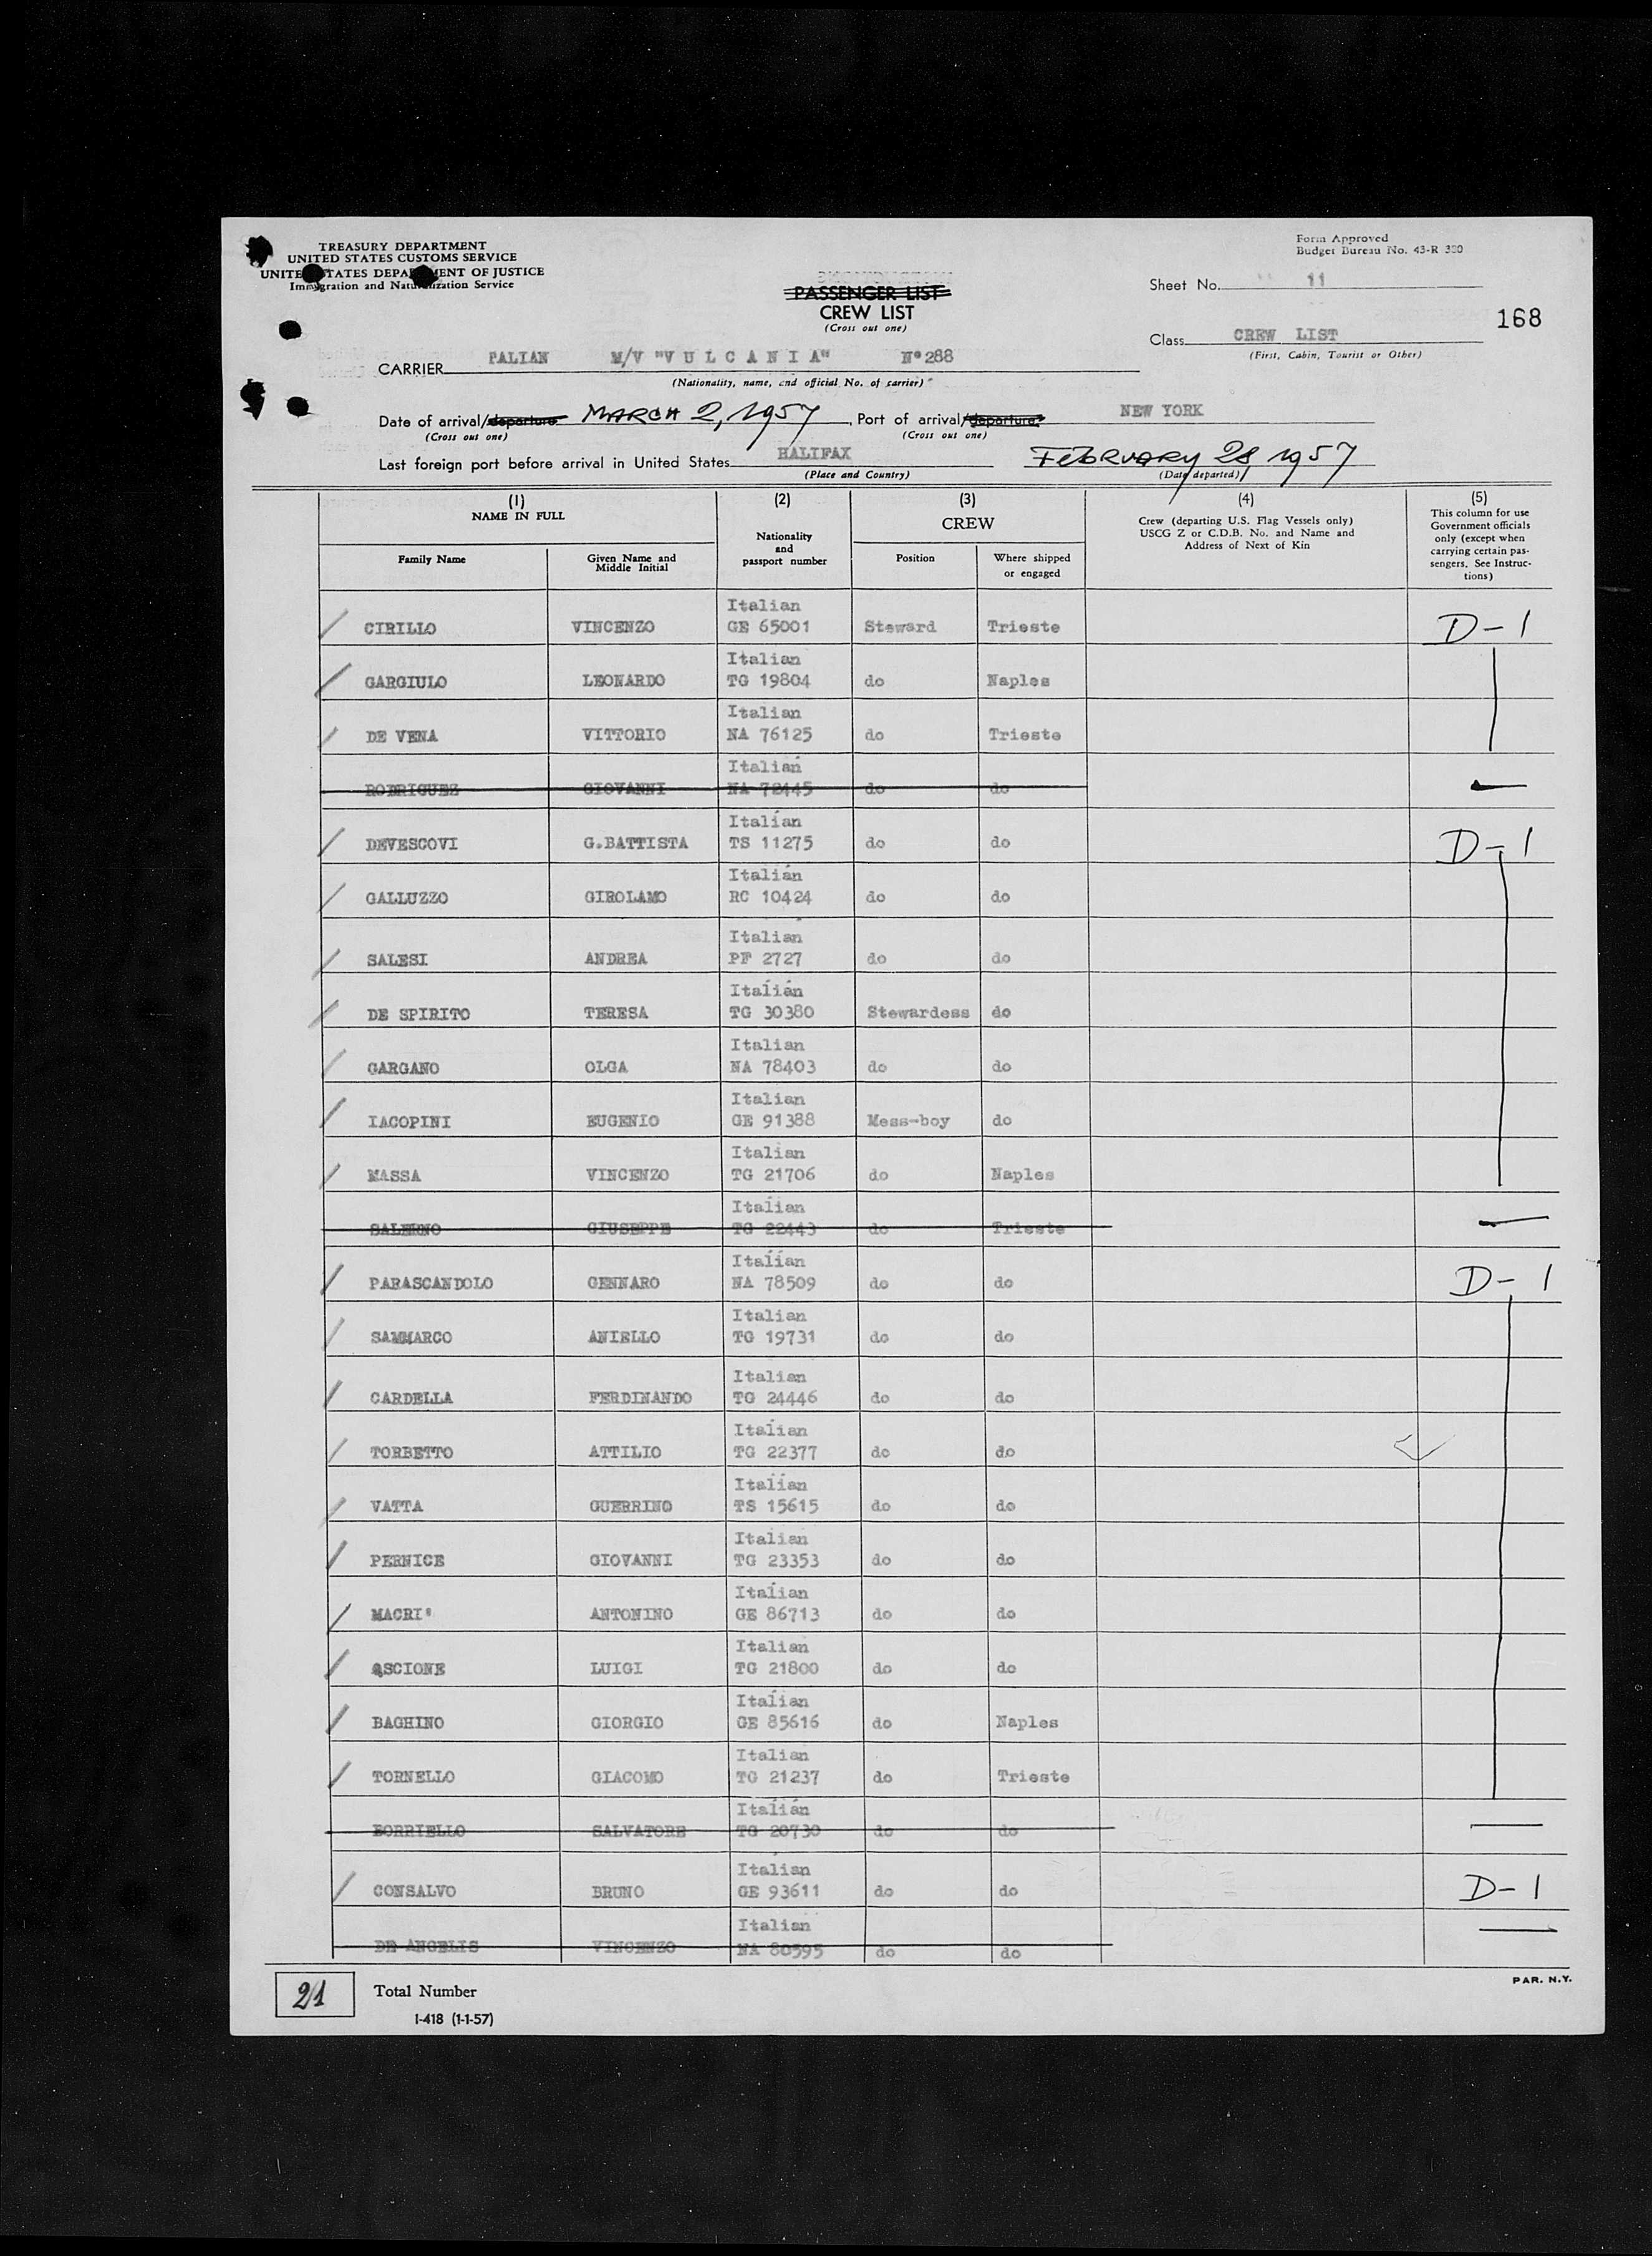 TREASURY DEPARTMENT
UNITED STATES CUSTOMS SERVICE
UNITED STATES DEPARTMENT OF JUSTICE
Immigration and Naturalization Service
Form Approved
Budget Bureau No. 43-R 380
Sheet No. 11
168
PASSENGER LIST
CREW LIST
(Cross out one)
Class CREW LIST
(First, Cabin, Tourist or Other)
CARRIER M/V "V U L C A N I A" N° 288
(Nationality, name, and official No. of carrier)
Date of arrival/departure MARCH 2, 1957, Port of arrival/departure NEW YORK
(Cross out one) (Cross out one)
Last foreign port before arrival in United States HALIFAX FEBRUARY 28, 1957
(Place and Country) (Date departed)
(1) (2) (3) (4) (5)
NAME IN FULL Nationality and passport number CREW Crew (departing U.S. Flag Vessels only) USCG Z or C.D.B. No. and Name and Address of Next of Kin This column for use Government officials only (except when carrying certain passengers. See Instructions)
Family Name Given Name and Middle Initial Position Where shipped or engaged
Italian
CIRILLO VINCENZO GE 65001 Steward Trieste D-1
Italian
GARGIULO LEONARDO TG 19804 do Naples
Italian
DE VENA VITTORIO NA 76125 do Trieste
Italian
RODRIGUEZ GIOVANNI NA 72445 do do
Italian
DEVESCOVI G.BATTISTA TS 11275 do do D-1
Italian
GALLUZZO GIROLAMO RC 10424 do do
Italian
SALESI ANDREA PF 2727 do do
Italian
DE SPIRITO TERESA TG 30380 Stewardess do
Italian
GARGANO OLGA NA 78403 do do
Italian
IACOPINI EUGENIO GE 91388 Mess-boy do
Italian
MASSA VINCENZO TG 21706 do Naples
Italian
SALERNO GIUSEPPE TG 22443 do Trieste
Italian
PARASCANDOLO GENNARO NA 78509 do do D-1
Italian
SAMMARCO ANIELLO TG 19731 do do
Italian
CARDELLA FERDINANDO TG 24446 do do
Italian
TORBETTO ATTILIO TG 22377 do do
Italian
VATTA GUERRINO TS 15615 do do
Italian
PERNICE GIOVANNI TG 23353 do do
Italian
MACRI' ANTONINO GE 86713 do do
Italian
ASCIONE LUIGI TG 21800 do do
Italian
BAGHINO GIORGIO GE 85616 do Naples
Italian
TORNELLO GIACOMO TG 21237 do Trieste
Italian
BORRIELLO SALVATORE TG 20730 do do
Italian
CONSALVO BRUNO GE 93611 do do D-1
Italian
DE ANGELIS VINCENZO NA 80595 do do
21 Total Number
I-418 (1-1-57)
PAR. N.Y.